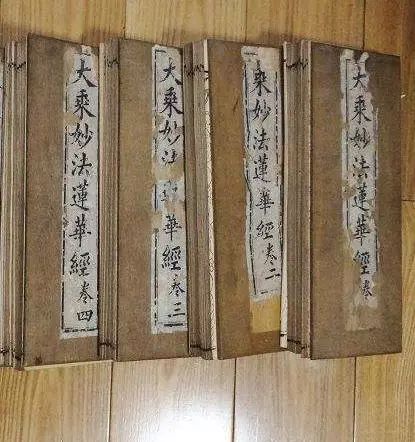 大乘妙法蓮華經卷
乘妙法蓮華經卷二
大乘妙法 華經卷三
大乘妙法蓮華經卷四